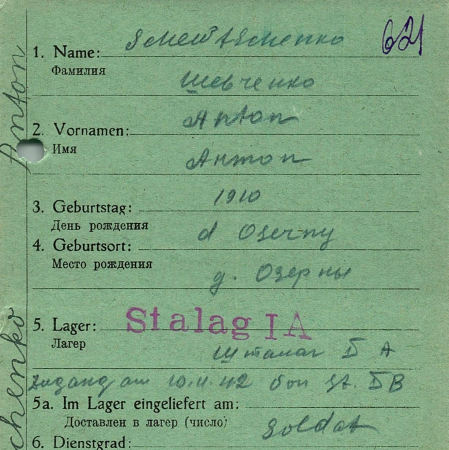 Schewtschenko
621
1. Name:
Фамилия
Шевченко
Anton
2. Vornamen:
Имя
Антон
1910
3. Geburtstag:
День рождения
d Oserny
4. Geburtsort:
Место рождения
д. Озерны
5. Lager:
Stalag IA
Лагер
Шталаг I A
Zugang am 10.11.42 von St. IB
5a. Im Lager eingeliefert am:
Доставлен в лагер (число)
Soldat
6. Dienstgrad:
Anton
chenko